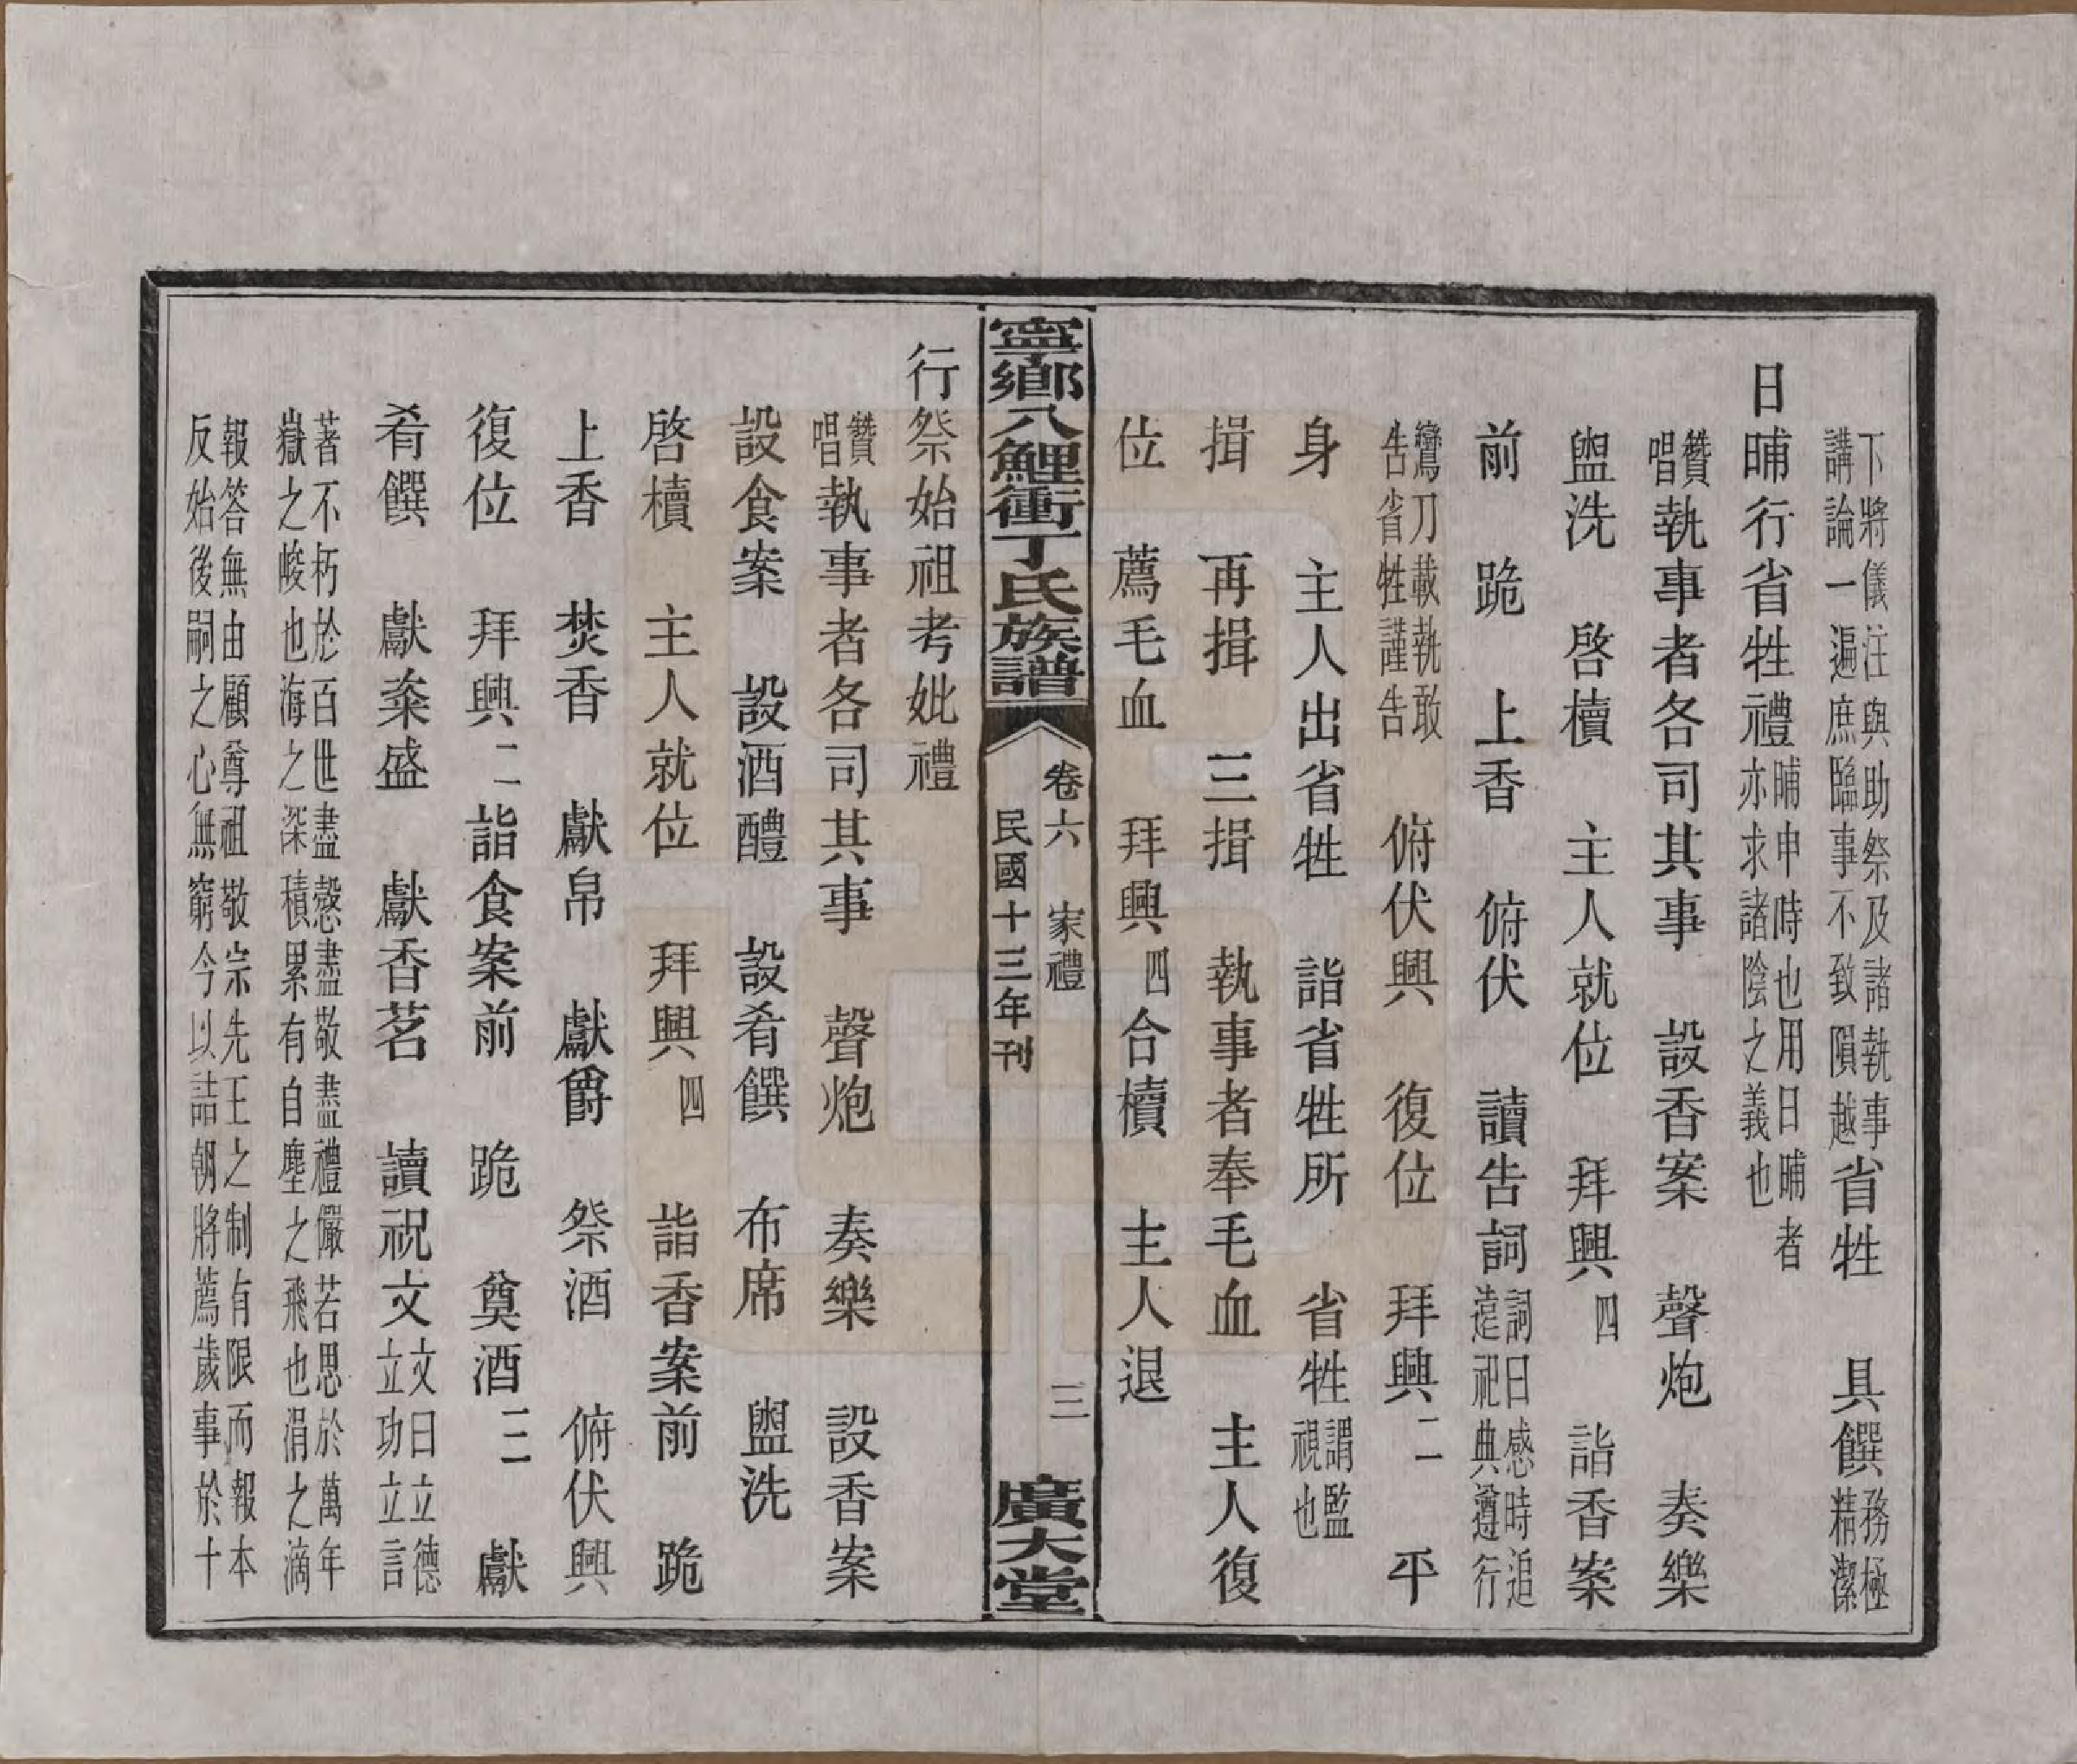 下將儀注與助祭及諸執事
講論一遍庶臨事不致隕越省牲　具饌務極
精潔
日晡行省牲禮晡申時也用日晡者
亦求諸陰之義也
贊
唱執事者各司其事　設香案　聲炮　奏樂
盥洗　啓櫝　主人就位　拜興四　詣香案
前　跪　上香　俯伏　讀告詞詞曰感時追
遠祀典遵行
鸞刀載執敢
告省牲謹告　俯伏興　復位　拜興二　平
身　主人出省牲　詣省牲所　省牲謂監
視也
揖　再揖　三揖　執事者奉毛血　主人復
位　薦毛血　拜興四　合櫝　主人退
寧鄉八鯉衝丁氏族譜　卷六　家禮　三　廣大堂
民國十三年刊
行祭始祖考妣禮
贊
唱執事者各司其事　聲炮　奏樂　設香案
設食案　設酒醴　設肴饌　布席　盥洗
啓櫝　主人就位　拜興四　詣香案前　跪
上香　焚香　獻帛　獻爵　祭酒　俯伏興
復位　拜興二　詣食案前　跪　奠酒三　獻
肴饌　獻粢盛　獻香茗　讀祝文文曰立德
立功立言
著不朽於百世盡慤盡敬盡禮儼若思於萬年
嶽之峻也海之深積累有自塵之飛也涓之滴
報答無由顧尊祖敬宗先王之制有限而報本
反始後嗣之心無窮今以詰朝將薦歲事於十